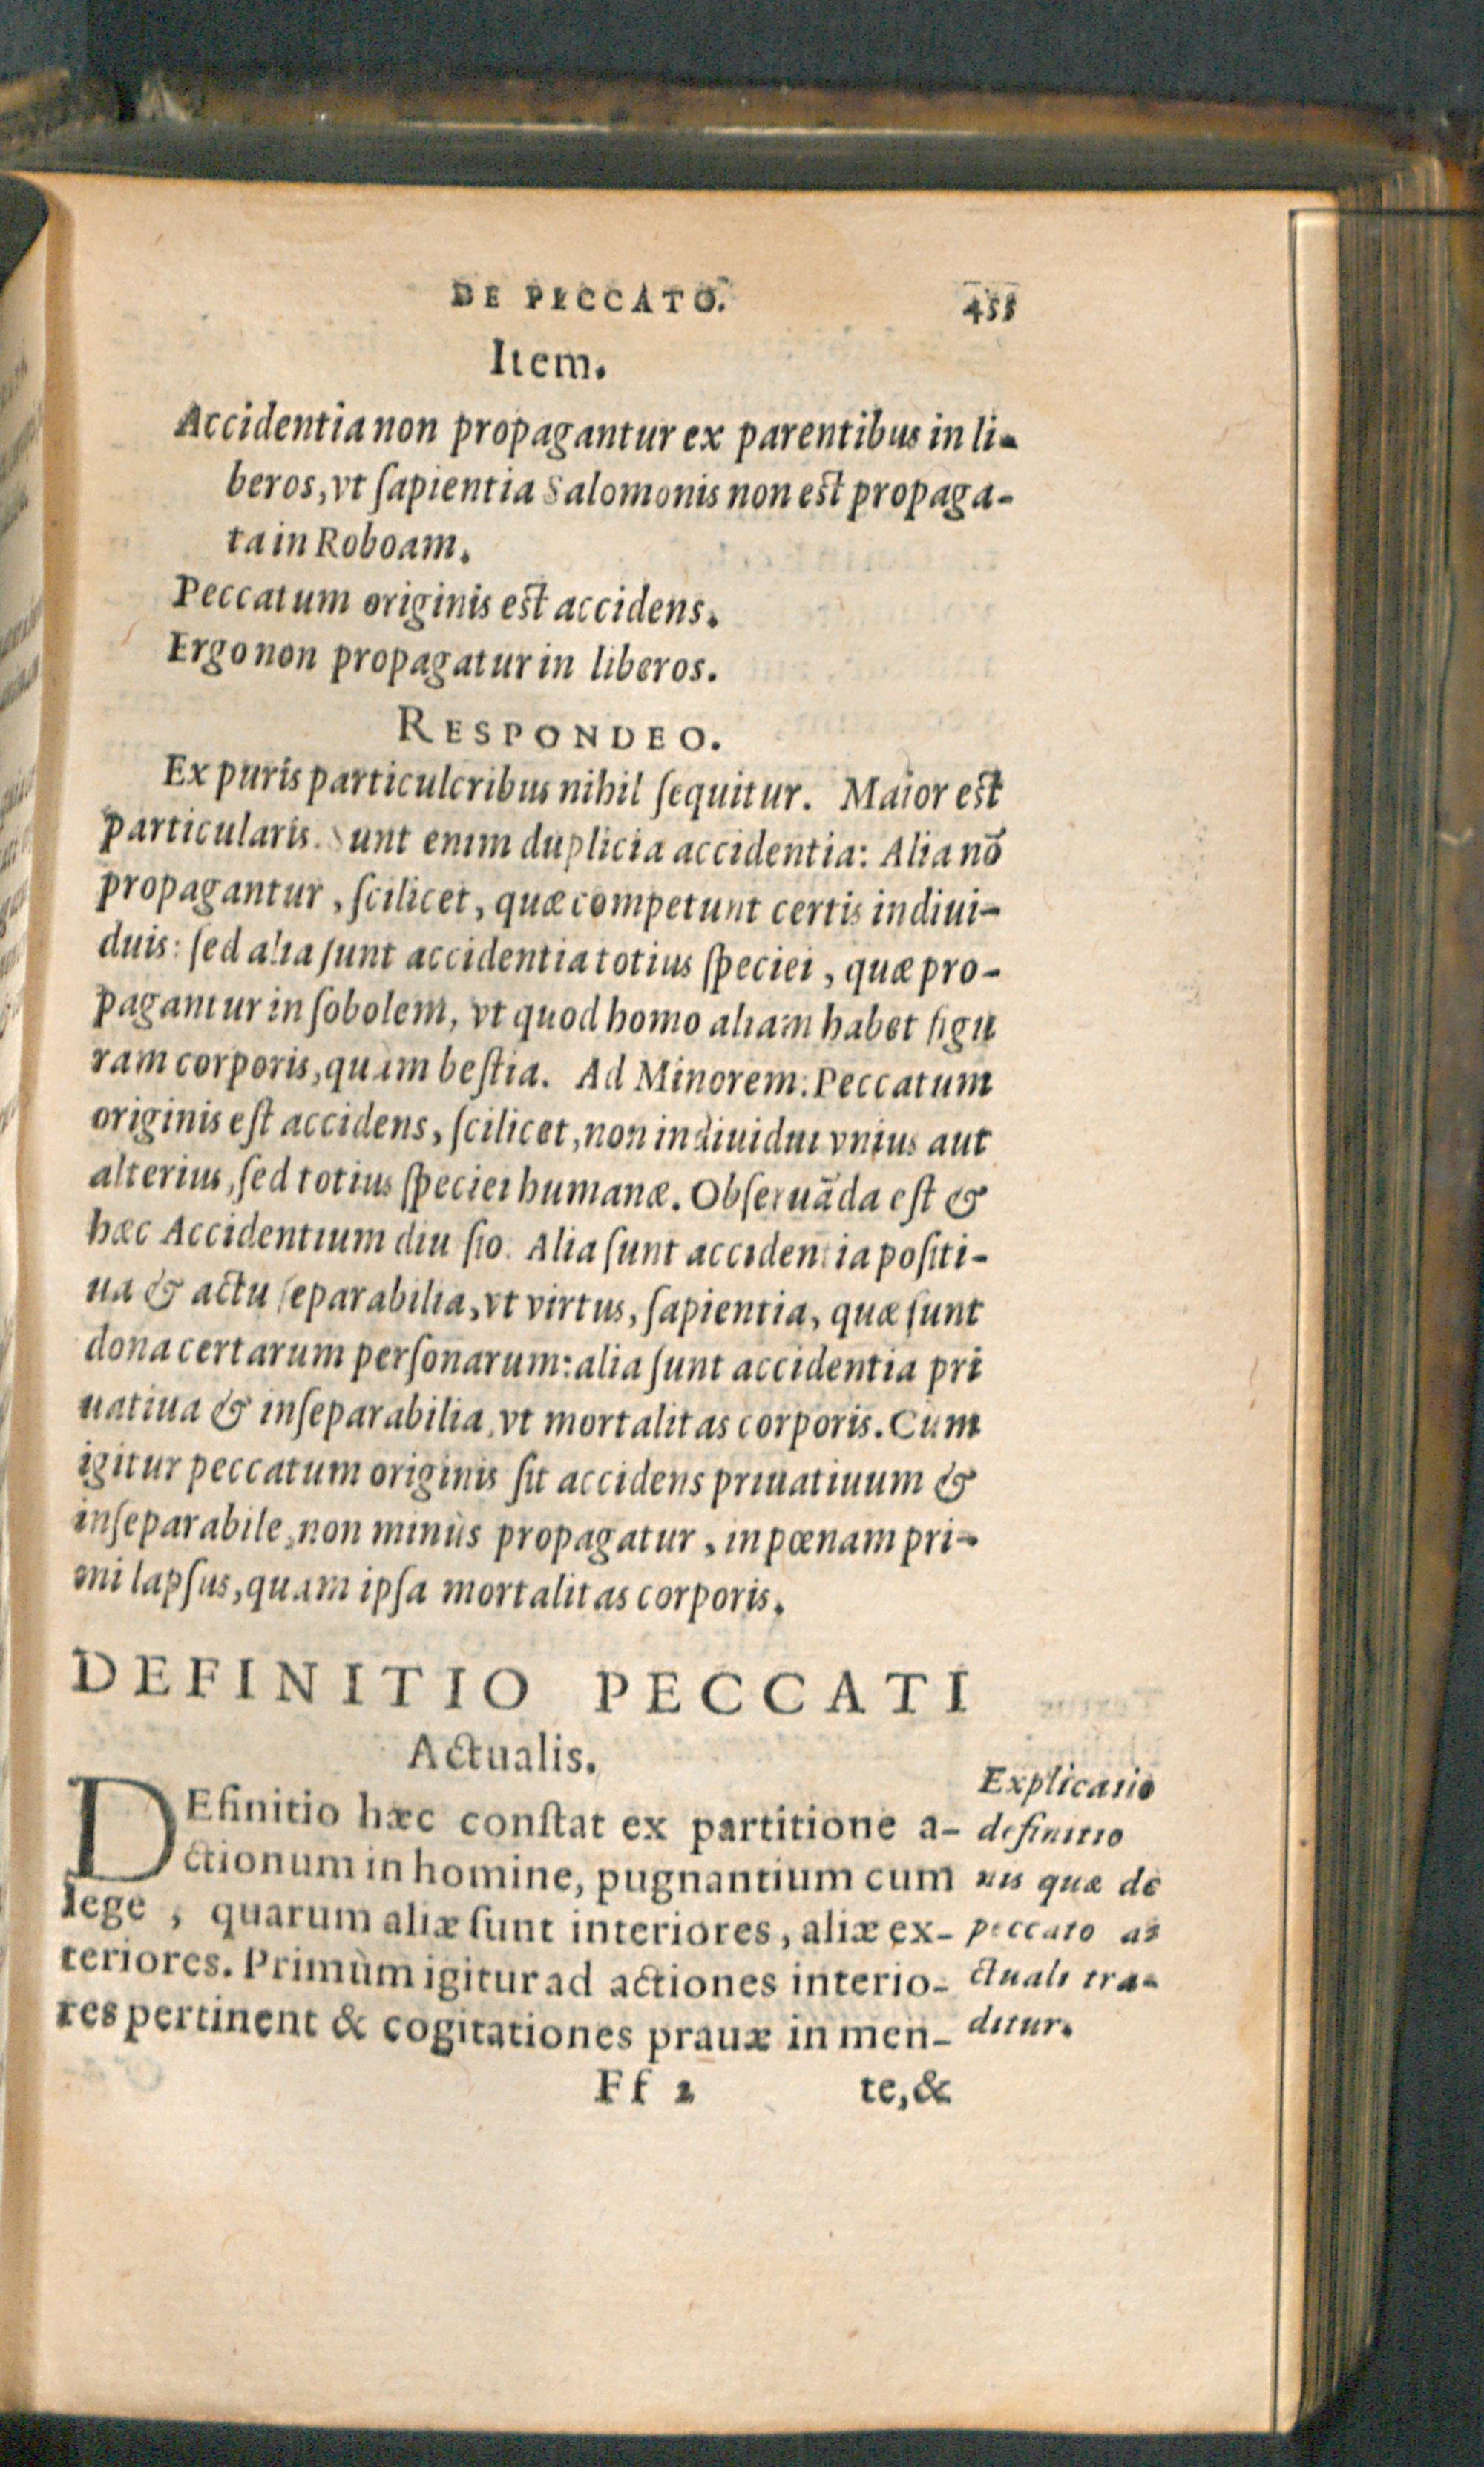 DE PECCATO. 455
Item.
Accidentia non propagantur ex parentibus in li-
beros, vt ſapientia Salomonis non est propaga-
ta in Roboam.
Peccatum originis est accidens.
Ergo non propagatur in liberos.
RESPONDEO.
Ex puris particularibus nihil ſequitur. Maior est
particularis. Sunt enim duplicia accidentia: Alia nō
propagantur, ſcilicet, quæ competunt certis indiui-
duis: ſed alia ſunt accidentia totius ſpeciei, quæ pro-
pagantur in ſobolem, vt quod homo aliam habet figu
ram corporis, quàm beſtia. Ad Minorem: Peccatum
originis eſt accidens, ſcilicet, non indiuidui vnius aut
alterius, ſed totius ſpeciei humanæ. Obſeruāda eſt &
hæc Accidentium diu ſio. Alia ſunt accidentia poſiti-
ua & actu ſeparabilia, vt virtus, ſapientia, quæ ſunt
dona certarum perſonarum: alia ſunt accidentia pri
uatiua & inſeparabilia, vt mortalitas corporis. Cùm
igitur peccatum originis ſit accidens priuatiuum &
inſeparabile, non minùs propagatur, in pœnam pri-
mi lapſus, quàm ipſa mortalitas corporis.
DEFINITIO PECCATI
Actualis.
DEfinitio hæc conſtat ex partitione a-
ctionum in homine, pugnantium cum
lege, quarum aliæ ſunt interiores, aliæ ex-
teriores. Primùm igitur ad actiones interio-
res pertinent & cogitationes prauæ in men-
Explicatio
definitio
nis quæ de
peccato a-
ctuali tra-
ditur.
Ff 2 te, &